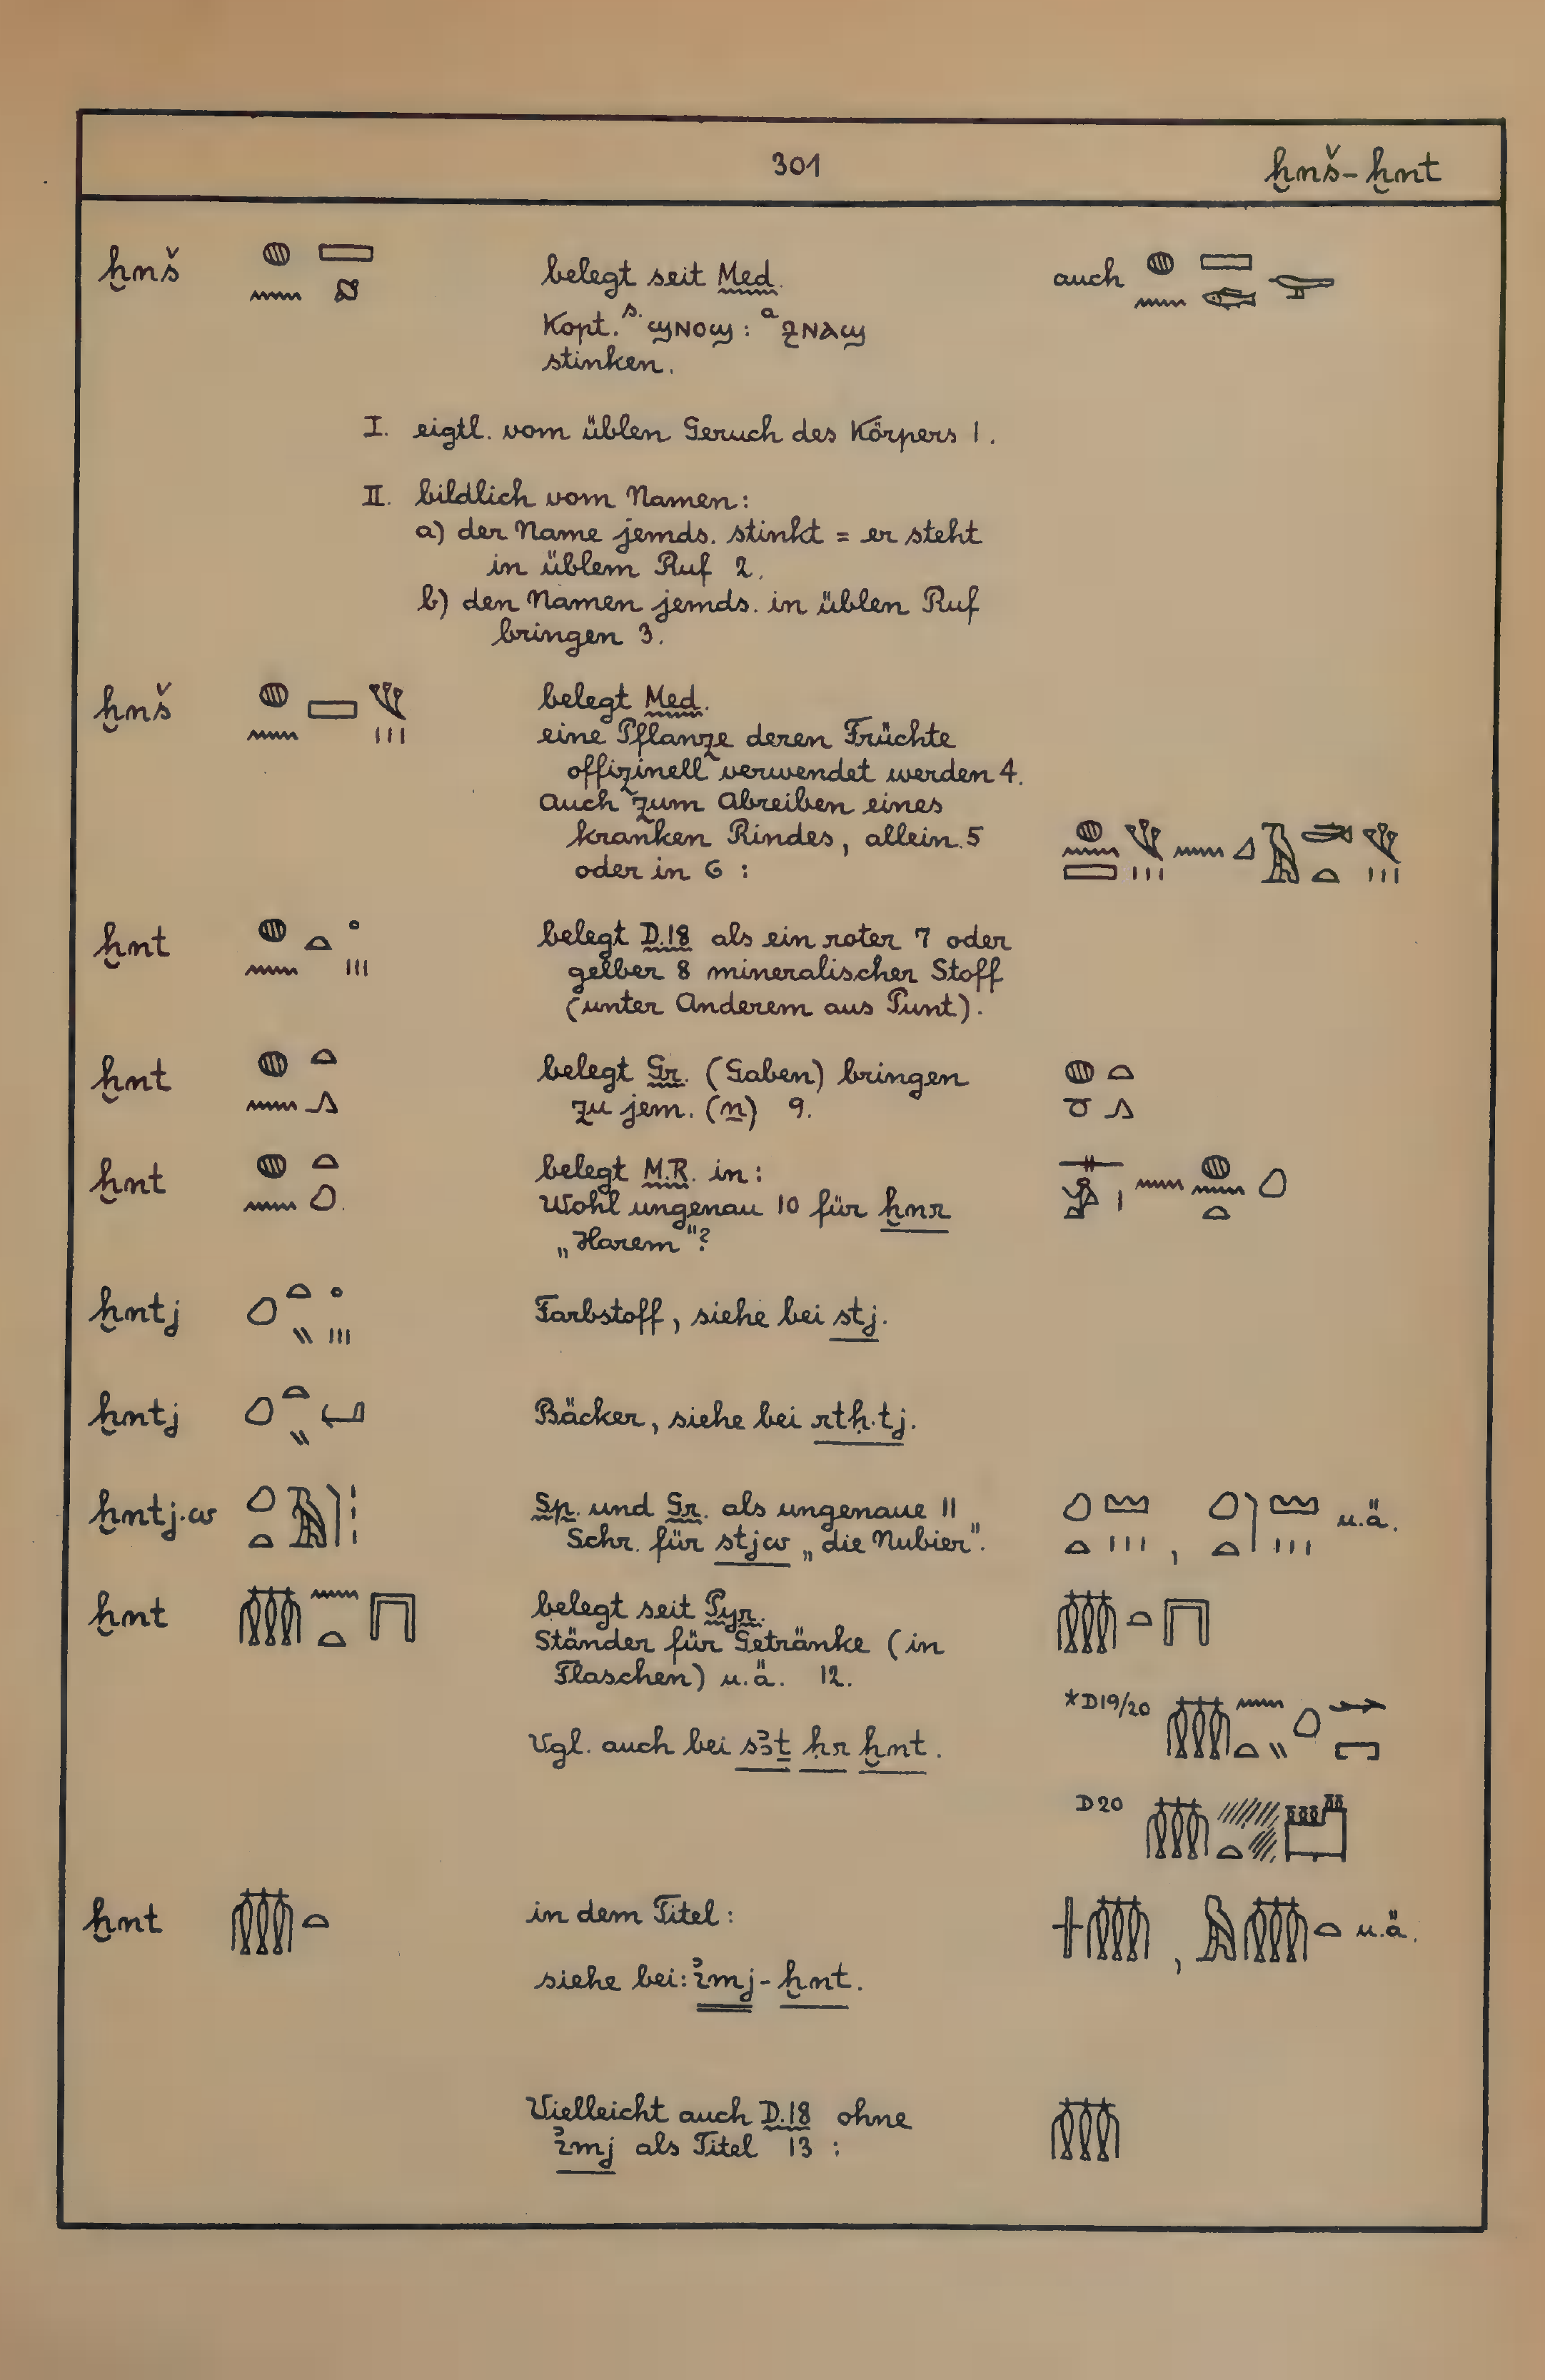 301
ḫnš – ḫnt
ḫnš belegt seit Med. auch
Kopt. s. ϣⲛⲟϣ : a ϩⲛⲁϣ
stinken.
I. eigtl. vom üblen Geruch des Körpers 1.
II. bildlich vom Namen:
a) der Name jemds. stinkt = er steht
in üblem Ruf 2.
b) den Namen jemds. in üblen Ruf
bringen 3.
ḫnš belegt Med.
eine Pflanze deren Früchte
offizinell verwendet werden 4.
Auch zum Abreiben eines
kranken Rindes, allein 5
oder in 6 :
ḫnt belegt D.18 als ein roter 7 oder
gelber 8 mineralischer Stoff
(unter Anderem aus Punt).
ḫnt belegt Gr. (Gaben) bringen
zu jem. (n) 9.
ḫnt belegt M.R. in:
Wohl ungenau 10 für ḫnr
„Harem"?
ḫntj Farbstoff, siehe bei stj.
ḫntj Bäcker, siehe bei rtḥ.tj.
ḫntj.w Sp. und Gr. als ungenaue 11 , u.ä.
Schr. für stjw „die Nubier".
ḫnt belegt seit Pyr.
Ständer für Getränke (in
Flaschen) u.ä. 12.
*D19/20
Vgl. auch bei sꜣṯ ḥr ḫnt.
D20
ḫnt in dem Titel: , u.ä.
siehe bei: ꞽmj-ḫnt.
Vielleicht auch D.18 ohne
ꞽmj als Titel 13 :